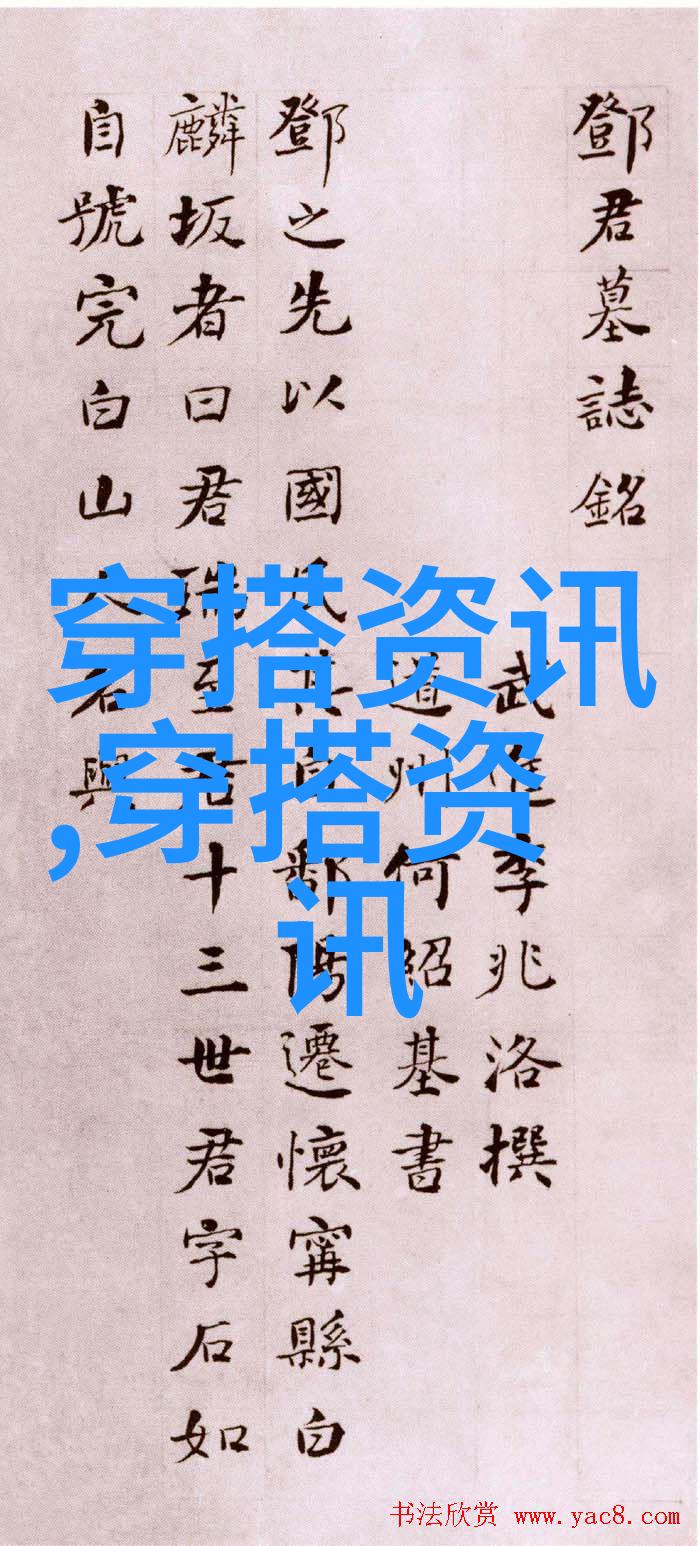 鄧君墓誌銘
武進李兆洛撰
道州何紹基書
鄧之先以國氏其自鄱陽遷懷甯縣白
麟坂者曰君瑞至君十三世君字石如
自號完白山人名與
穿搭资讯
,穿搭资
讯
书法欣赏 www.yac8.com